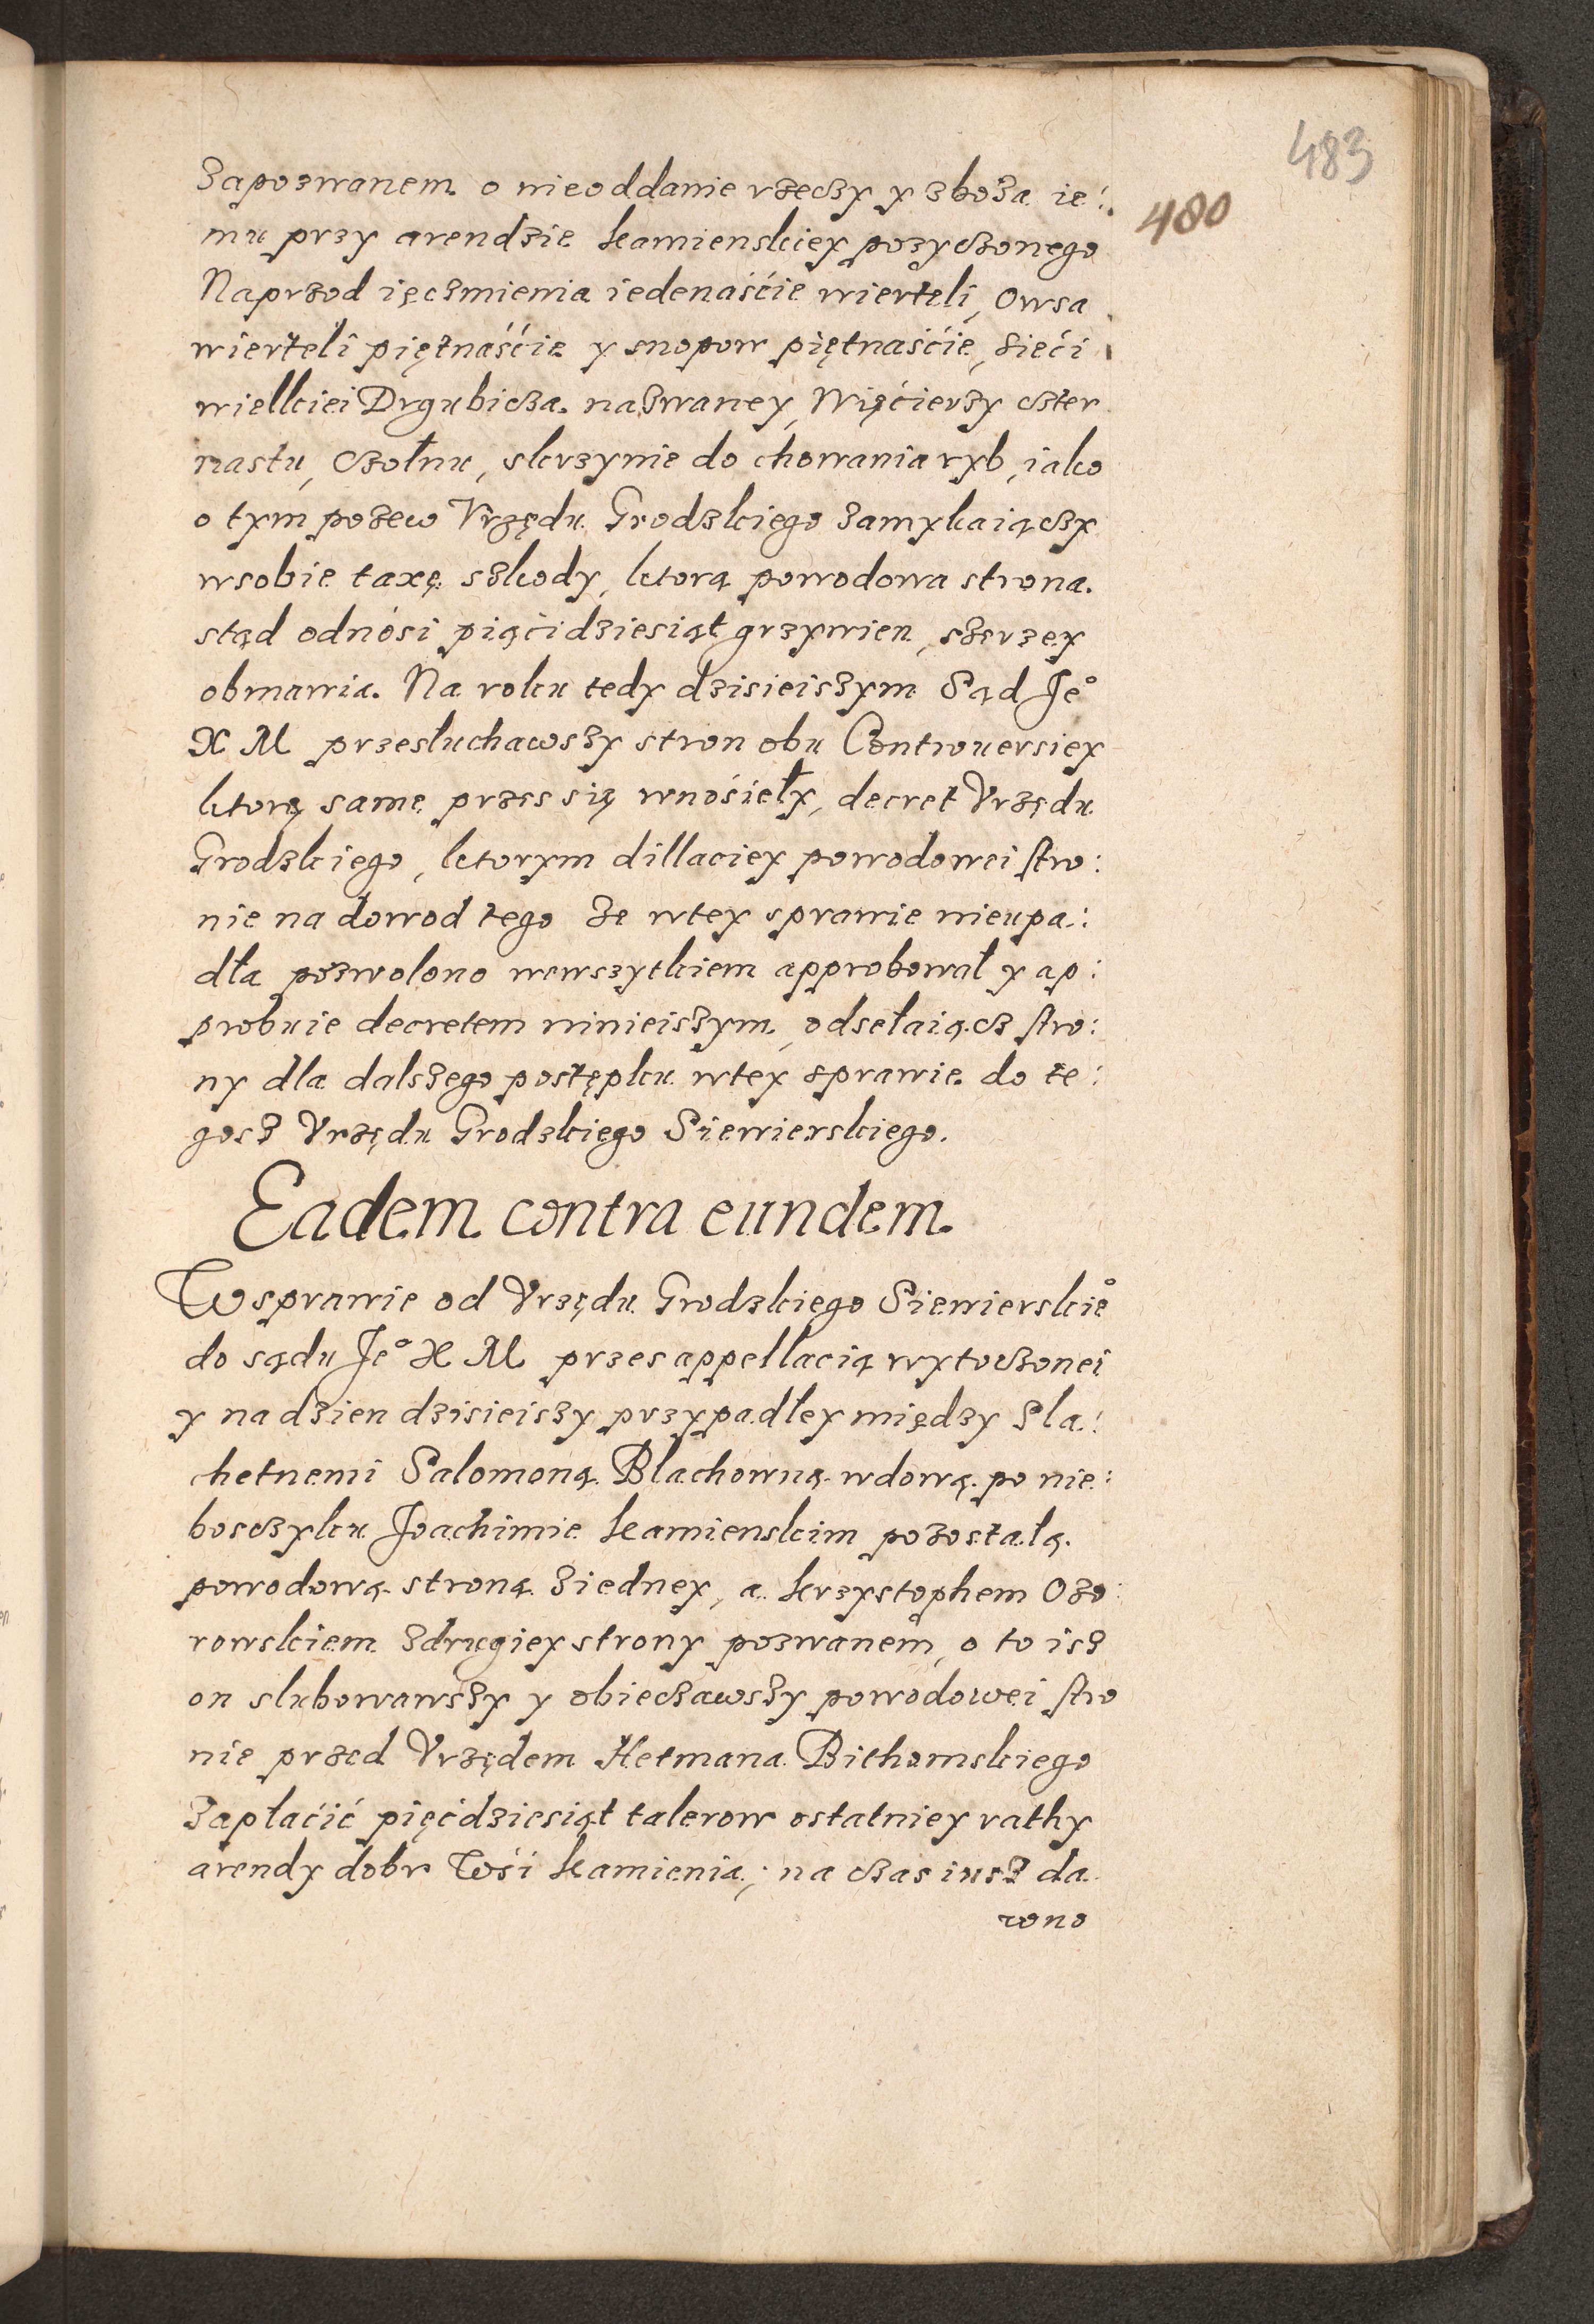 483
480
Zapozwanem o nieoddanie rzeczy y zboża ie:
mu przy arendzie Kamienskiey pozyczonego
Naprzod ięczmienia iedenaśćie wierteli, Owsa
wierteli piętnaśćie y snopow piętnaśćie, Sieći
wielkiei Drgubicza nazwaney, Więćierzy czter
nastu, Czołnu, skrzynie do chowania ryb, iako
o tym pozew Vrzędu Grodzkiego zamykaiączy
wsobie taxę szkody, ktorą powodowa strona
stąd odnośi piąćidziesiąt grzywien, szerzey
obmawia. Na roku tedy dzisieiszym Sąd Je°
X M przesłuchawszy stron obu Controuersiey
ktorę same przes się wnośieły, decret Vrzędu
Grodzkiego, ktorym dillaciey powodowei stro:
nie na dowod tego że wtey sprawie nieupa:
dła pozwolono wewszytkiem approbował y ap:
probuie decretem ninieiszym, odsełaiącz stro:
ny dla dalszego postępku wtey sprawie do te:
gosz Vrzędu Grodzkiego Siewierskiego.
Eadem contra eundem.
W sprawie od Vrzędu Grodzkiego Siewierskie°
do sądu Je° X M przes appellacią wytoczonei
y na dzien dzisieiszy przypadłey między Sla:
chetnemi Salomoną Blachowną wdową po nie:
bosczyku Joachimie Kamienskim pozostałą
powodową stroną ziedney, a Krzystophem Ożo:
rowskiem zdrugiey strony pozwanem, o to isz
on slubowawszy y obieczawszy powodowei stro
nie przed Vrzędem Hetmana Bithomskiego
Zapłaćić pięćdziesiąt talerow ostatniey rathy
arendy dobr Wśi Kamienia, na czas iusz da
wono